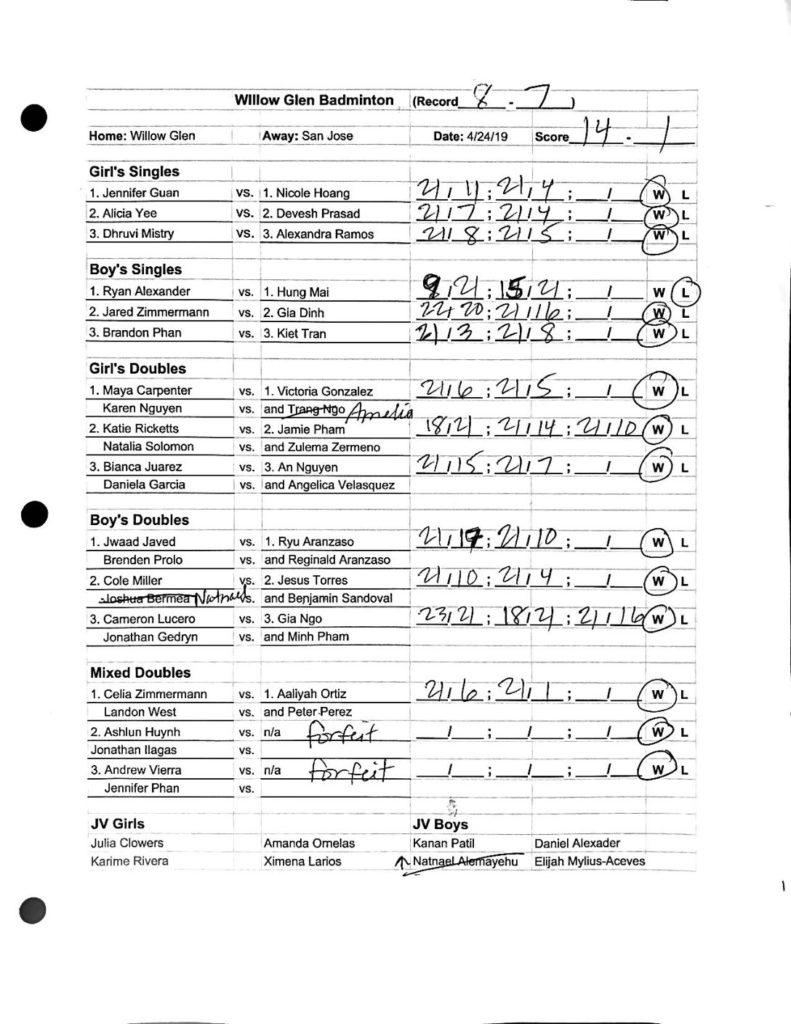 WIllow Glen Badminton (Record 8 - 7 )
Home: Willow Glen Away: San Jose Date: 4/24/19 Score 14 - 1
Girl's Singles
1. Jennifer Guan vs. 1. Nicole Hoang 21 / 11 ; 21 / 4 ; / W L
2. Alicia Yee vs. 2. Devesh Prasad 21 / 7 ; 21 / 4 ; / W L
3. Dhruvi Mistry vs. 3. Alexandra Ramos 21 / 8 ; 21 / 5 ; / W L
Boy's Singles
1. Ryan Alexander vs. 1. Hung Mai 9 / 21 ; 15 / 21 ; / W L
2. Jared Zimmermann vs. 2. Gia Dinh 22 / 20 ; 21 / 16 ; / W L
3. Brandon Phan vs. 3. Kiet Tran 21 / 3 ; 21 / 8 ; / W L
Girl's Doubles
1. Maya Carpenter vs. 1. Victoria Gonzalez 21 / 6 ; 21 / 5 ; / W L
Karen Nguyen vs. and Trang Ngo Amelia
2. Katie Ricketts vs. 2. Jamie Pham 18 / 21 ; 21 / 14 ; 21 / 10 W L
Natalia Solomon vs. and Zulema Zermeno
3. Bianca Juarez vs. 3. An Nguyen 21 / 15 ; 21 / 7 ; / W L
Daniela Garcia vs. and Angelica Velasquez
Boy's Doubles
1. Jwaad Javed vs. 1. Ryu Aranzaso 21 / 17 ; 21 / 10 ; / W L
Brenden Prolo vs. and Reginald Aranzaso
2. Cole Miller vs. 2. Jesus Torres 21 / 10 ; 21 / 4 ; / W L
Joshua Bermea Natnael vs. and Benjamin Sandoval
3. Cameron Lucero vs. 3. Gia Ngo 23 / 21 ; 18 / 21 ; 21 / 16 W L
Jonathan Gedryn vs. and Minh Pham
Mixed Doubles
1. Celia Zimmermann vs. 1. Aaliyah Ortiz 21 / 6 ; 21 / 1 ; / W L
Landon West vs. and Peter Perez
2. Ashlun Huynh vs. n/a forfeit / ; / ; / W L
Jonathan Ilagas vs.
3. Andrew Vierra vs. n/a forfeit / ; / ; / W L
Jennifer Phan vs.
JV Girls JV Boys
Julia Clowers Amanda Ornelas Kanan Patil Daniel Alexader
Karime Rivera Ximena Larios ↑ Natnael Alemayehu Elijah Mylius-Aceves